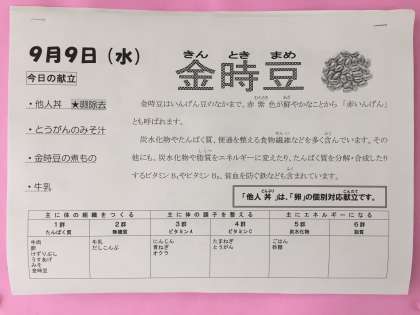 9月9日（水）
今日の献立
・他人丼　★卵除去
・とうがんのみそ汁
・金時豆の煮もの
・牛乳
きん とき まめ
金時豆
金時豆はいんげん豆のなかまで、赤紫色が鮮やかなことから「赤いんげん」
とも呼ばれます。
炭水化物やたんぱく質、便通を整える食物繊維などを多く含んでいます。その
他にも、炭水化物や脂質をエネルギーに変えたり、たんぱく質を分解・合成したり
するビタミンB₁やビタミンB₆、貧血を防ぐ鉄なども含まれています。
「他人丼」は、「卵」の個別対応献立です。
主に体の組織をつくる 主に体の調子を整える 主にエネルギーになる
1群 2群 3群 4群 5群 6群
たんぱく質 無機質 ビタミンA ビタミンC 炭水化物 脂質
牛肉 牛乳 にんじん たまねぎ ごはん
卵 だしこんぶ 青ねぎ とうがん 砂糖
けずりぶし オクラ
うすあげ
みそ
金時豆